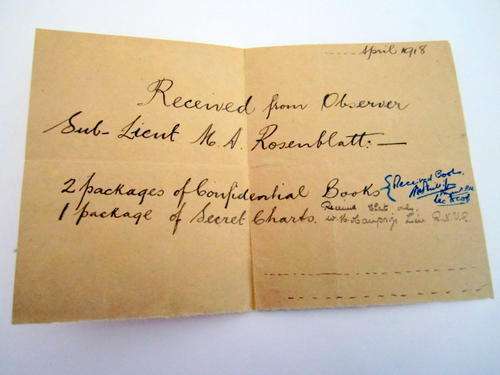 April 1918
Received from Observer
Sub-Lieut M. A. Rosenblatt:—
2 packages of Confidential Books
{ Received Books
1 package of Secret Charts.
Received only.
Lieu R.N.V.R